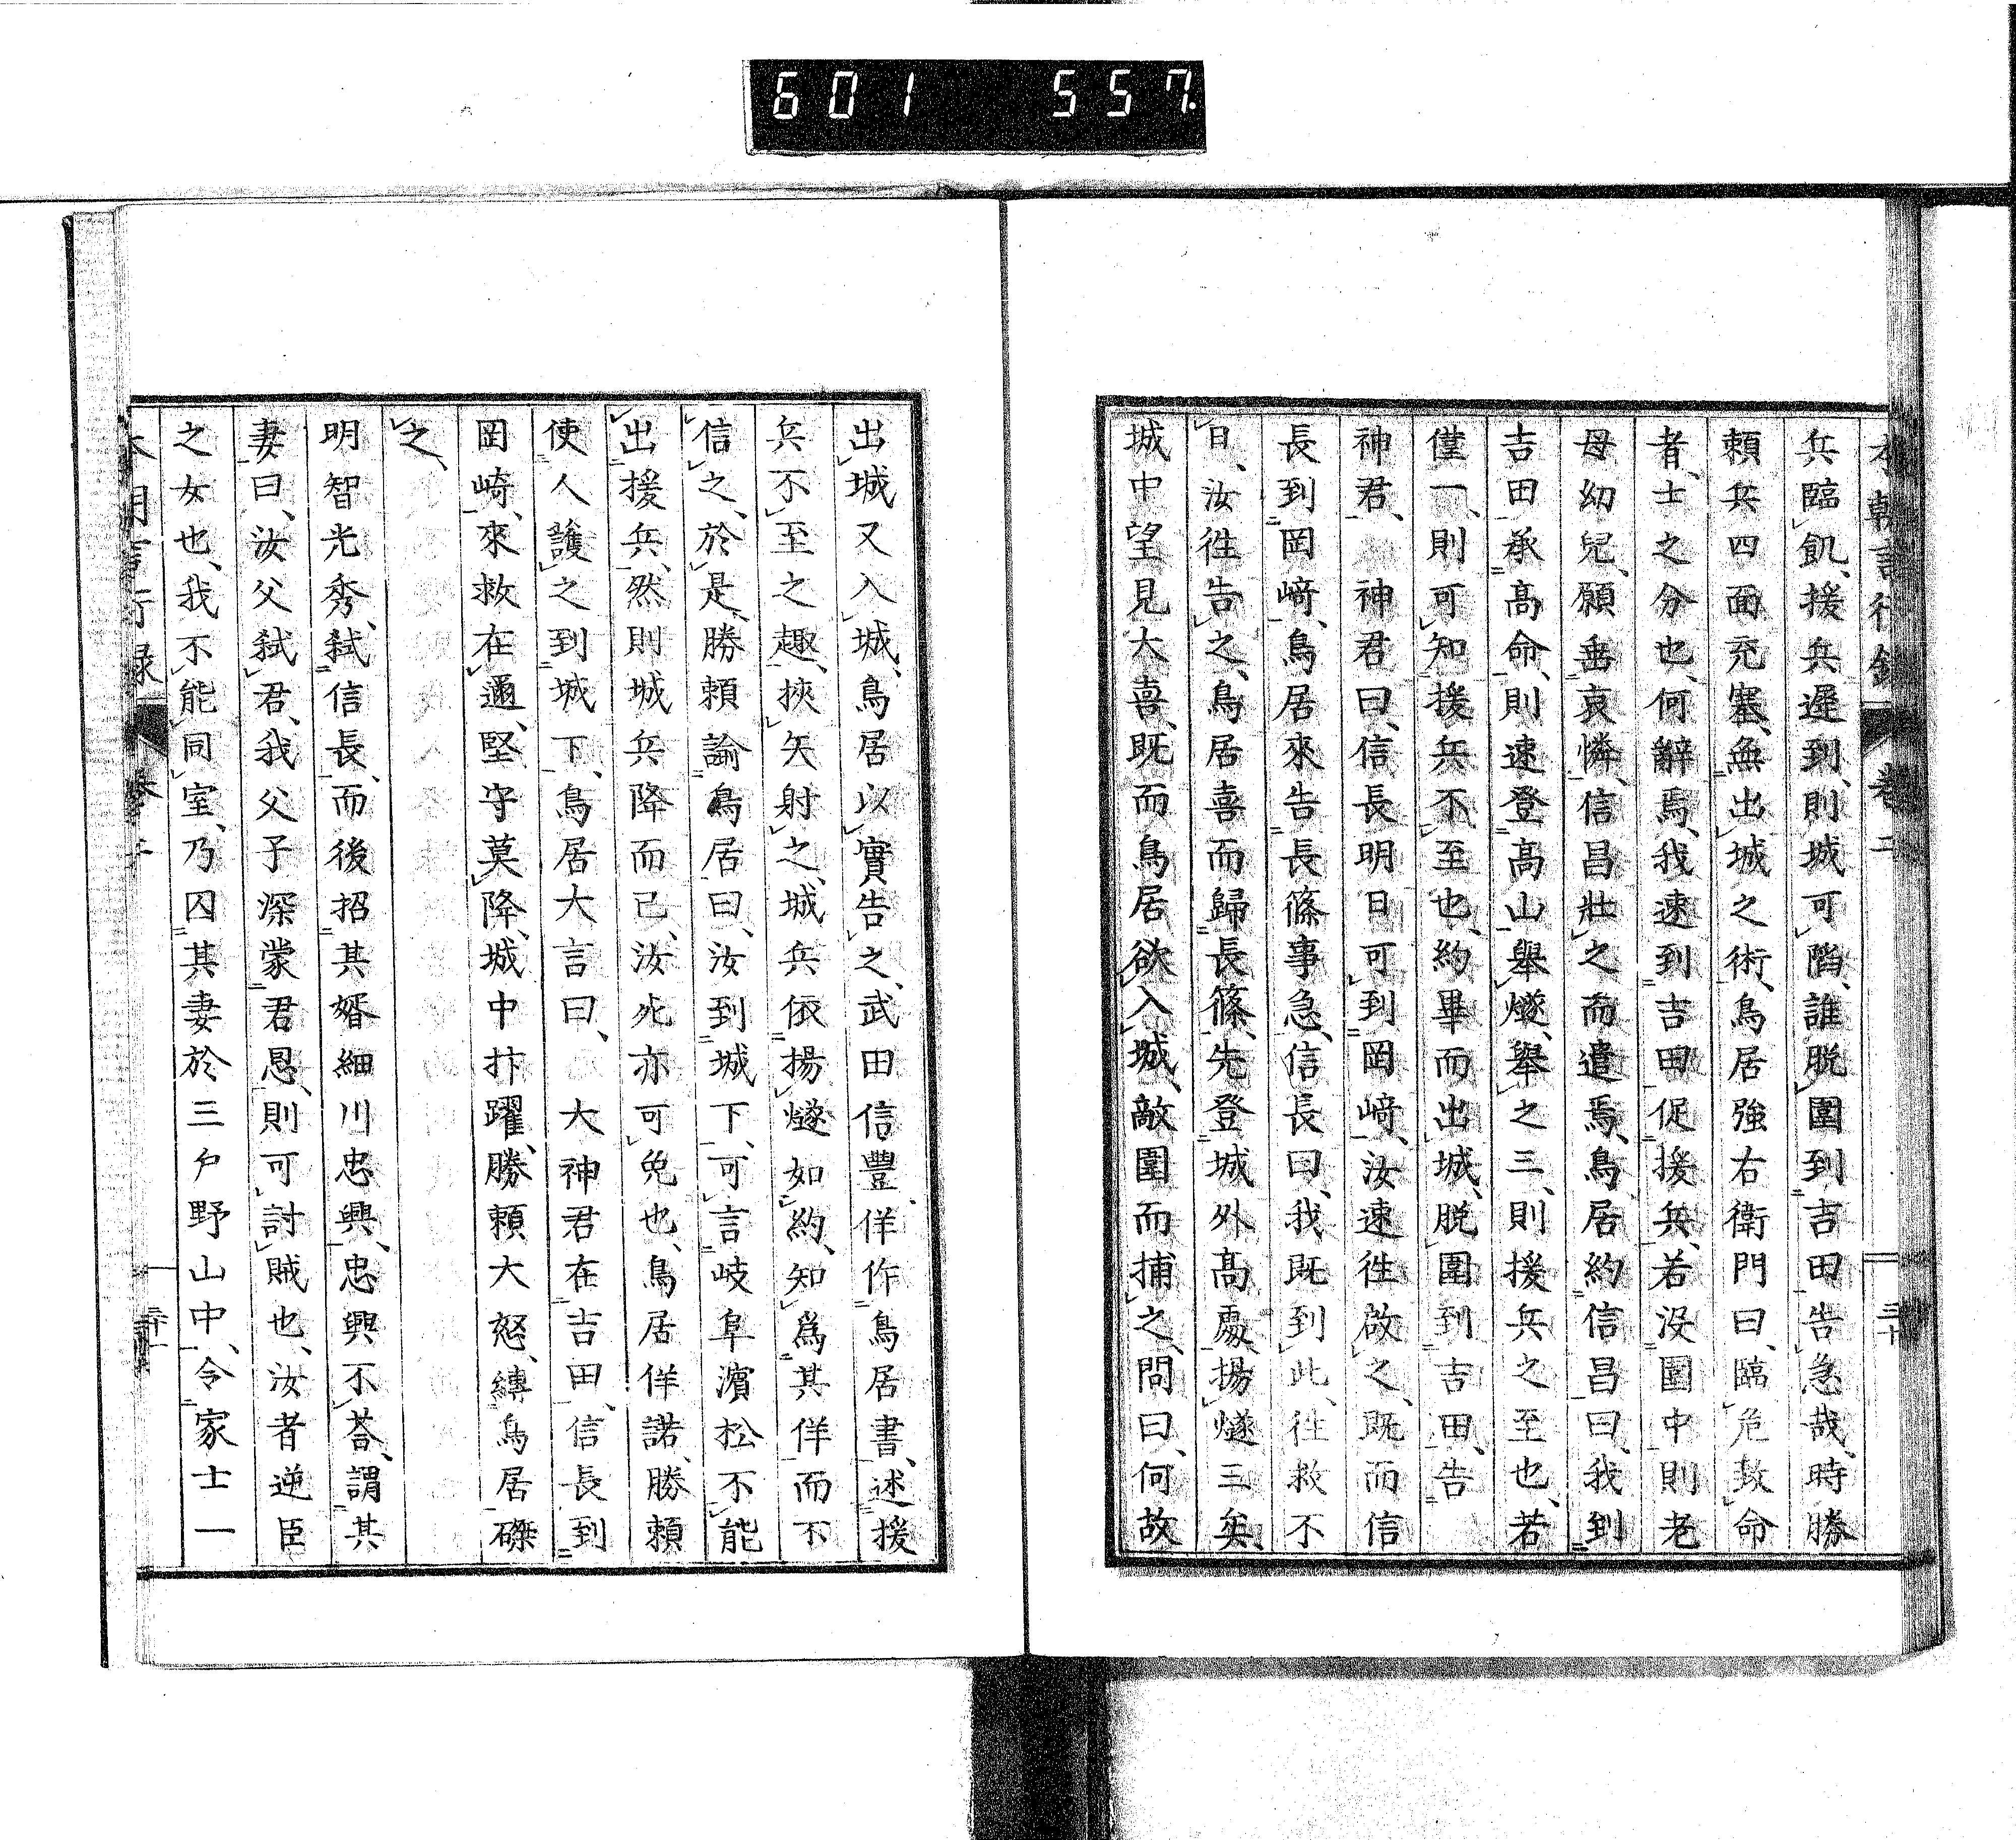 601 557
本朝言行録 卷二 三十
兵臨飢、援兵遲到、則城可陷、誰脱圍到吉田告急哉、時勝
頼兵四面充塞、無出城之術、鳥居強右衛門曰、臨危致命
者、士之分也、何辭焉、我速到吉田促援兵、若没圍中則老
母幼兒、願垂哀憐、信昌壯之而遣焉、鳥居約信昌曰、我到
吉田承高命、則速登高山舉燧、舉之三、則援兵之至也、若
僅一、則可知援兵不至也、約畢而出城、脱圍到吉田、告
神君、神君曰、信長明日可到岡﨑、汝速徃啟之、既而信
長到岡﨑、鳥居來告長篠事急、信長曰、我既到此、往救不
日、汝徃告之、鳥居喜而歸長篠、先登城外高處揚燧三矣、
城中望見大喜、既而鳥居欲入城、敵圍而捕之、問曰、何故
出城又入城、鳥居以實告之、武田信豐佯作鳥居書、述援
兵不至之趣、挾矢射之、城兵依揚燧如約、知爲其佯而不
信之、於是、勝頼諭鳥居曰、汝到城下、可言岐阜濱松不能
出援兵、然則城兵降而已、汝死亦可免也、鳥居佯諾、勝頼
使人護之到城下、鳥居大言曰、大神君在吉田、信長到
岡崎、來救在邇、堅守莫降、城中抃躍、勝頼大怒、縛鳥居磔
之、
明智光秀、弑信長、而後招其婿細川忠興、忠興不荅、謂其
妻曰、汝父弑君、我父子深蒙君恩、則可討賊也、汝者逆臣
之女也、我不能同室、乃囚其妻於三戸野山中、令家士一